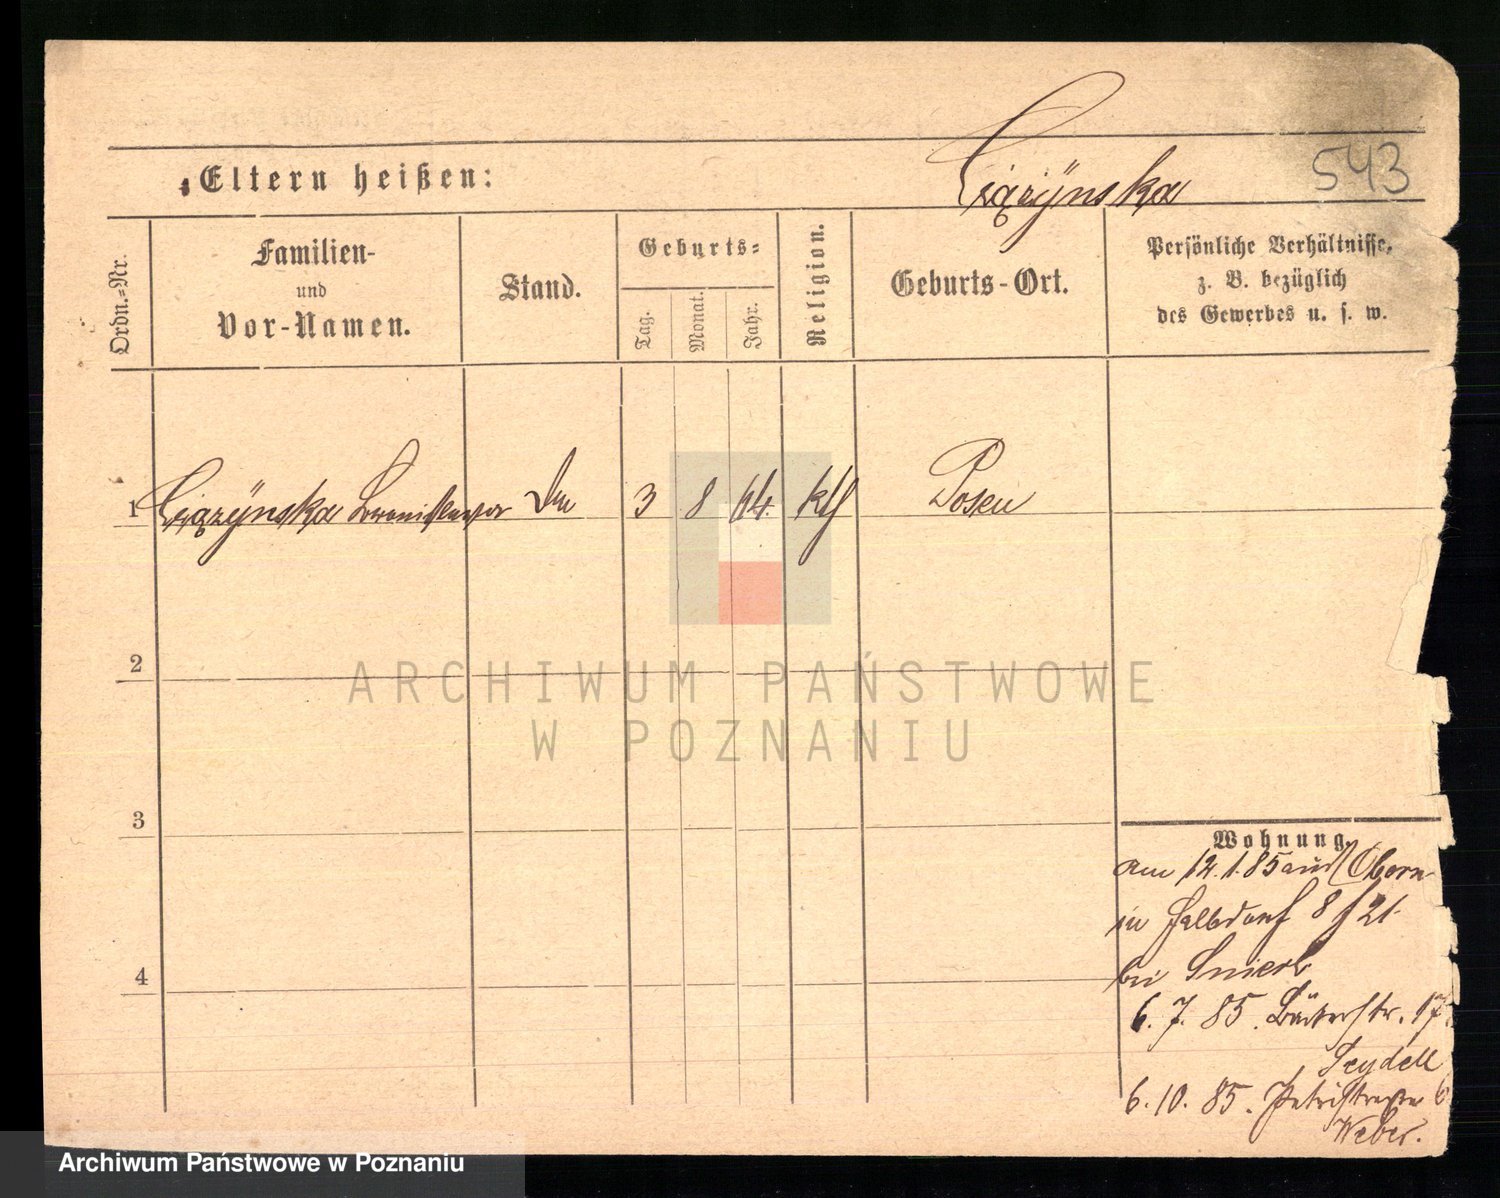 Ciążÿnska
543
Eltern heißen:
Ordn.-Nr.
Familien-
und
Vor-Namen.
Stand.
Geburts-
Tag.
Monat.
Jahr.
Religion.
Geburts-Ort.
Persönliche Verhältnisse,
z. B. bezüglich
des Gewerbes u. s. w.
1 Ciążÿnska 3 8 64. kth Posen
2
3
4
Wohnung.
am 12.1.85 aus
in 8 / 21.
bei
6. 7. 85. Bäckerstr. 17.
Seydell
6. 10. 85. Petristrasse 6
Weber.
ARCHIWUM PAŃSTWOWE
W POZNANIU
Archiwum Państwowe w Poznaniu